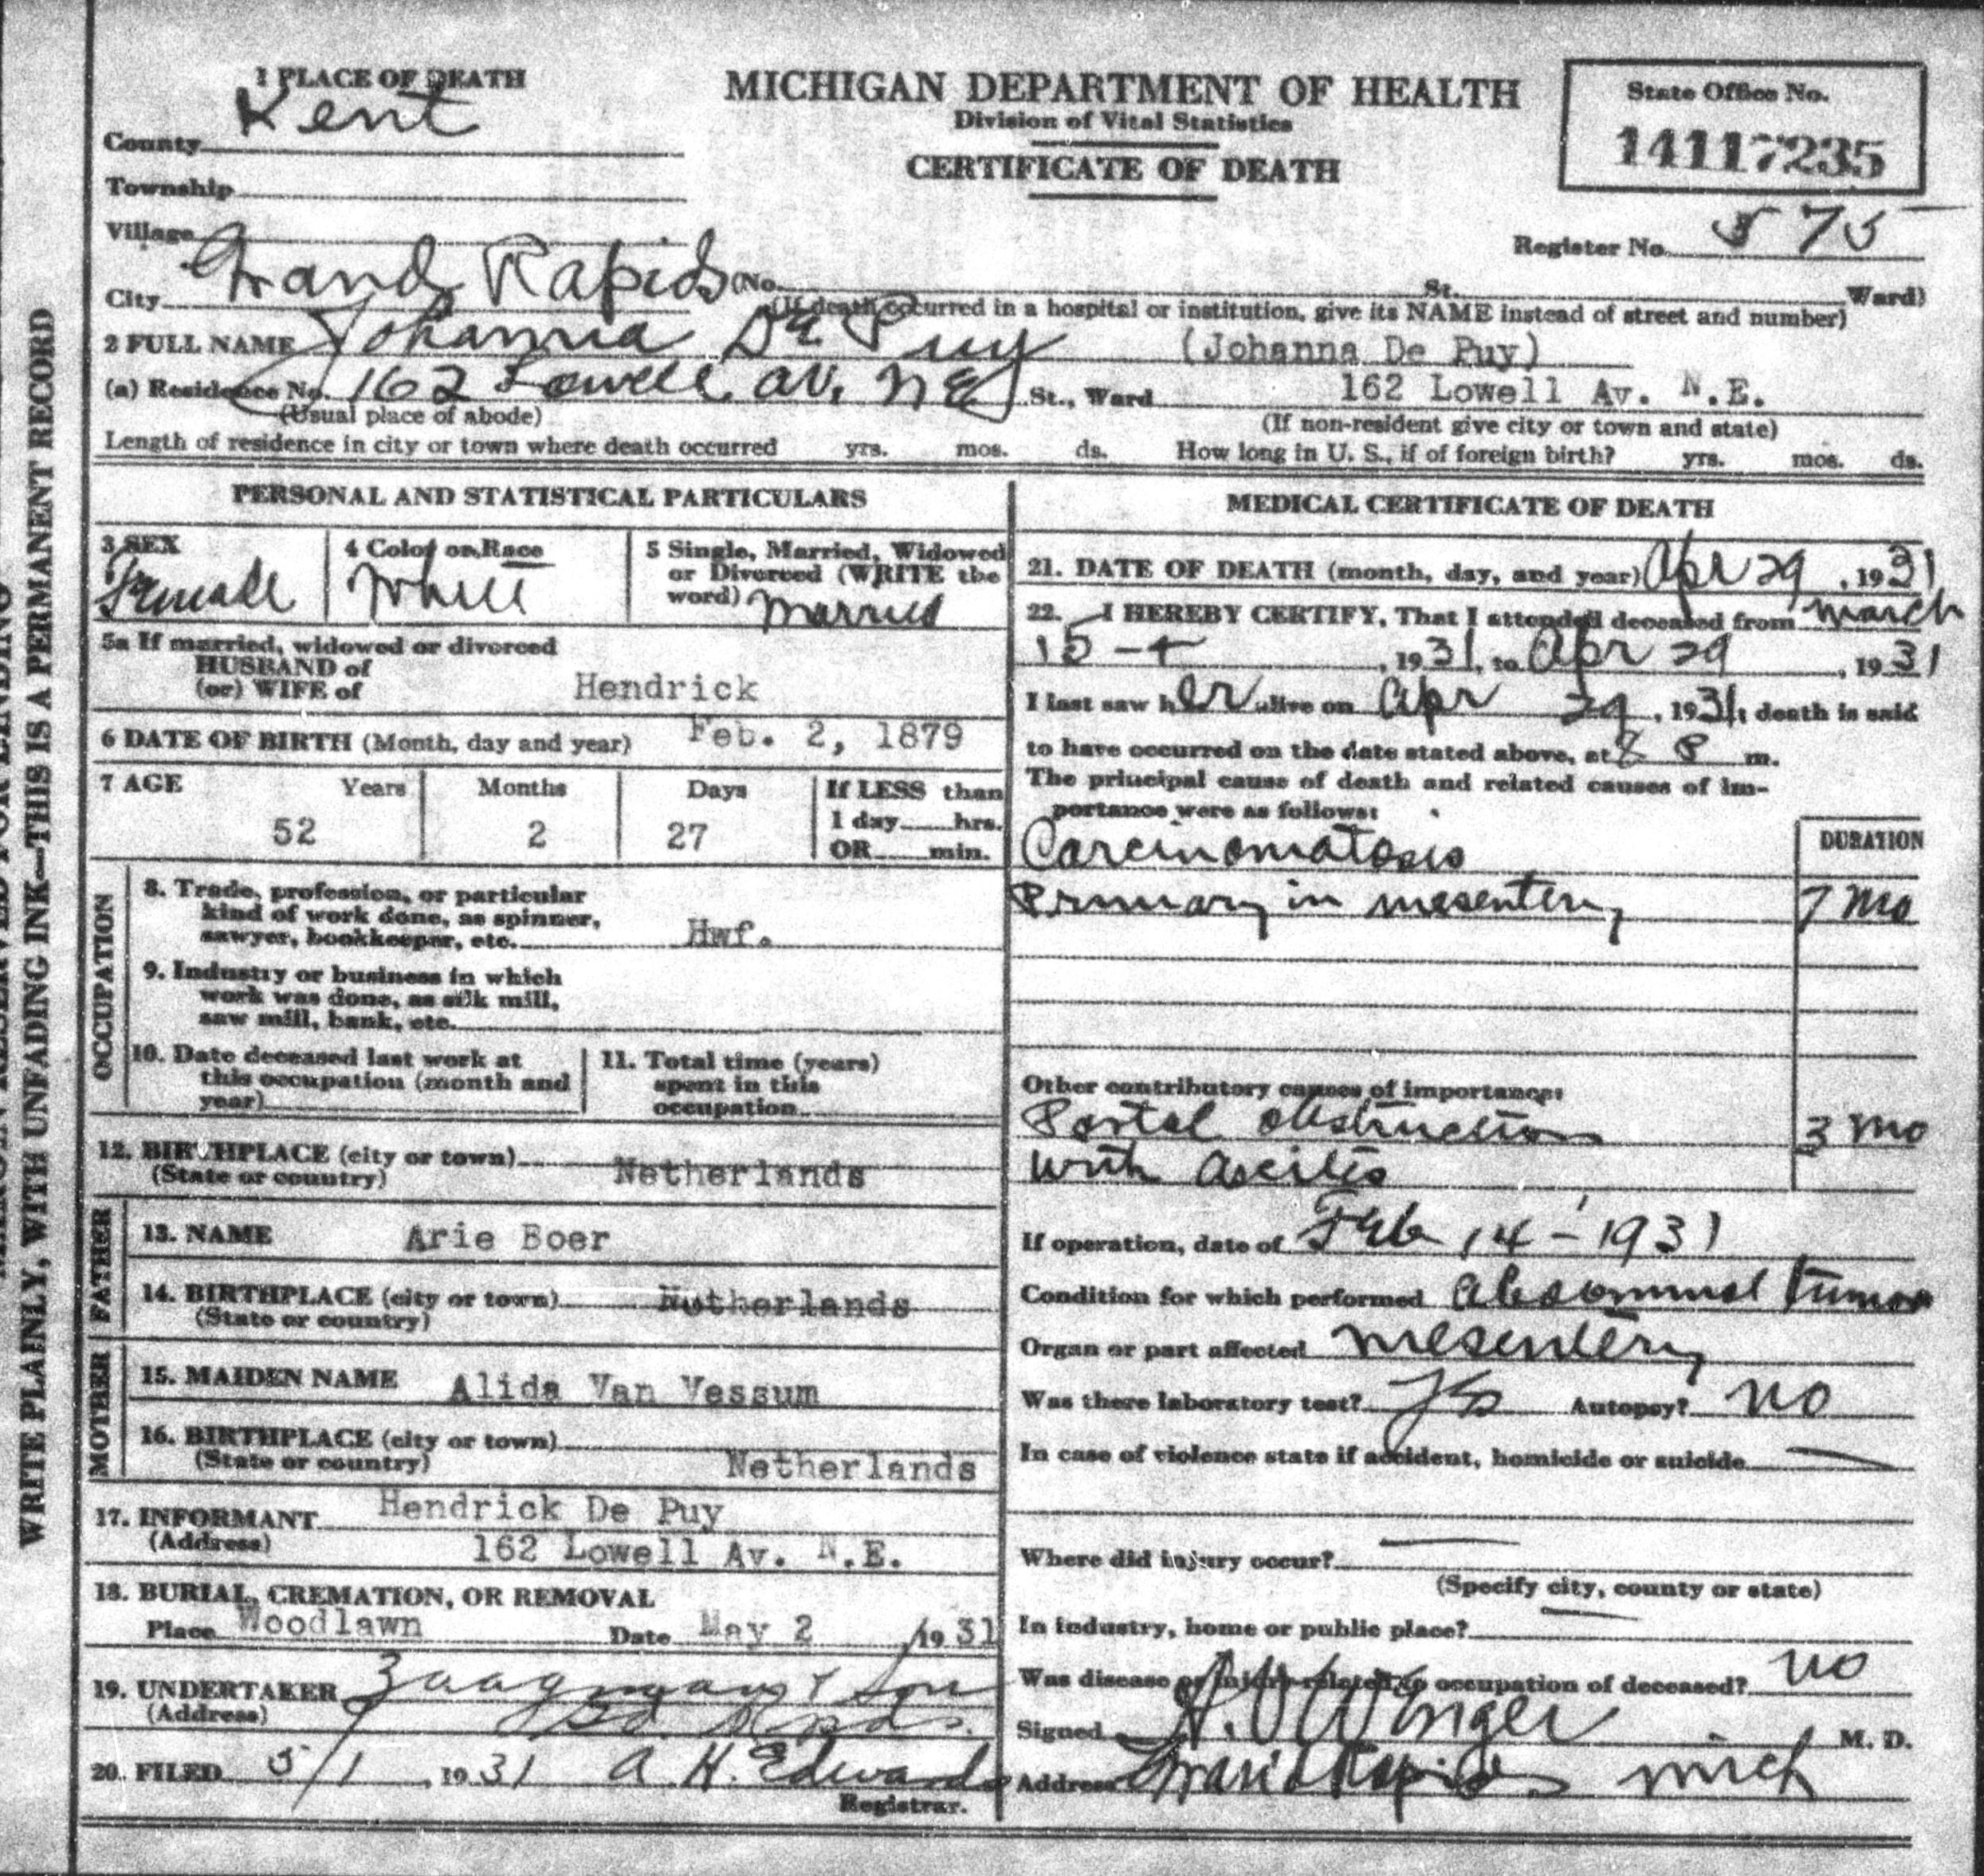 1 PLACE OF DEATH
County Kent
Township
Village
City Grand Rapids (No. St. Ward)
MICHIGAN DEPARTMENT OF HEALTH
Division of Vital Statistics
CERTIFICATE OF DEATH
State Office No.
14117235
Register No. 575
(If death occurred in a hospital or institution, give its NAME instead of street and number)
2 FULL NAME Johanna De Puy (Johanna De Puy)
(a) Residence No. 162 Lowell av, NE St., Ward 162 Lowell Av. N.E.
(Usual place of abode) (If non-resident give city or town and state)
Length of residence in city or town where death occurred yrs. mos. ds. How long in U. S., if of foreign birth? yrs. mos. ds.
WRITE PLAINLY, WITH UNFADING INK—THIS IS A PERMANENT RECORD
PERSONAL AND STATISTICAL PARTICULARS
3 SEX
Female
4 Color or Race
White
5 Single, Married, Widowed
or Divorced (WRITE the
word) Married
5a If married, widowed or divorced
HUSBAND of
(or) WIFE of Hendrick
6 DATE OF BIRTH (Month, day and year) Feb. 2, 1879
7 AGE Years Months Days If LESS than
52 2 27 1 day hrs.
OR min.
OCCUPATION
8. Trade, profession, or particular
kind of work done, as spinner,
sawyer, bookkeeper, etc. Hwf.
9. Industry or business in which
work was done, as silk mill,
saw mill, bank, etc.
10. Date deceased last work at
this occupation (month and
year)
11. Total time (years)
spent in this
occupation
12. BIRTHPLACE (city or town) Netherlands
(State or country)
FATHER
13. NAME Arie Boer
14. BIRTHPLACE (city or town) Netherlands
(State or country)
MOTHER
15. MAIDEN NAME Alida Van Vessum
16. BIRTHPLACE (city or town)
(State or country) Netherlands
17. INFORMANT Hendrick De Puy
(Address) 162 Lowell Av. N.E.
18. BURIAL, CREMATION, OR REMOVAL
Place Woodlawn Date May 2 1931
19. UNDERTAKER Zaagman & Son
(Address) Gd Rpds.
20. FILED 5/1, 1931 A. H. Edwards
Registrar.
MEDICAL CERTIFICATE OF DEATH
21. DATE OF DEATH (month, day, and year) Apr 29, 1931
22. I HEREBY CERTIFY, That I attended deceased from March
15 -, 1931, to Apr 29, 1931
I last saw her alive on Apr 29, 1931; death is said
to have occurred on the date stated above, at P m.
The principal cause of death and related causes of im-
portance were as follows:
DURATION
Carcinomatosis
Primary in mesentery 7 mo
Other contributory causes of importance:
Portal obstruction 3 mo
with ascites
If operation, date of Feb 14 - 1931
Condition for which performed abdominal tumor
Organ or part affected mesentery
Was there laboratory test? yes Autopsy? no
In case of violence state if accident, homicide or suicide —
Where did injury occur? —
(Specify city, county or state)
In industry, home or public place? —
Was disease or injury related to occupation of deceased? no
Signed Wenger M. D.
Address Grand Rapids Mich